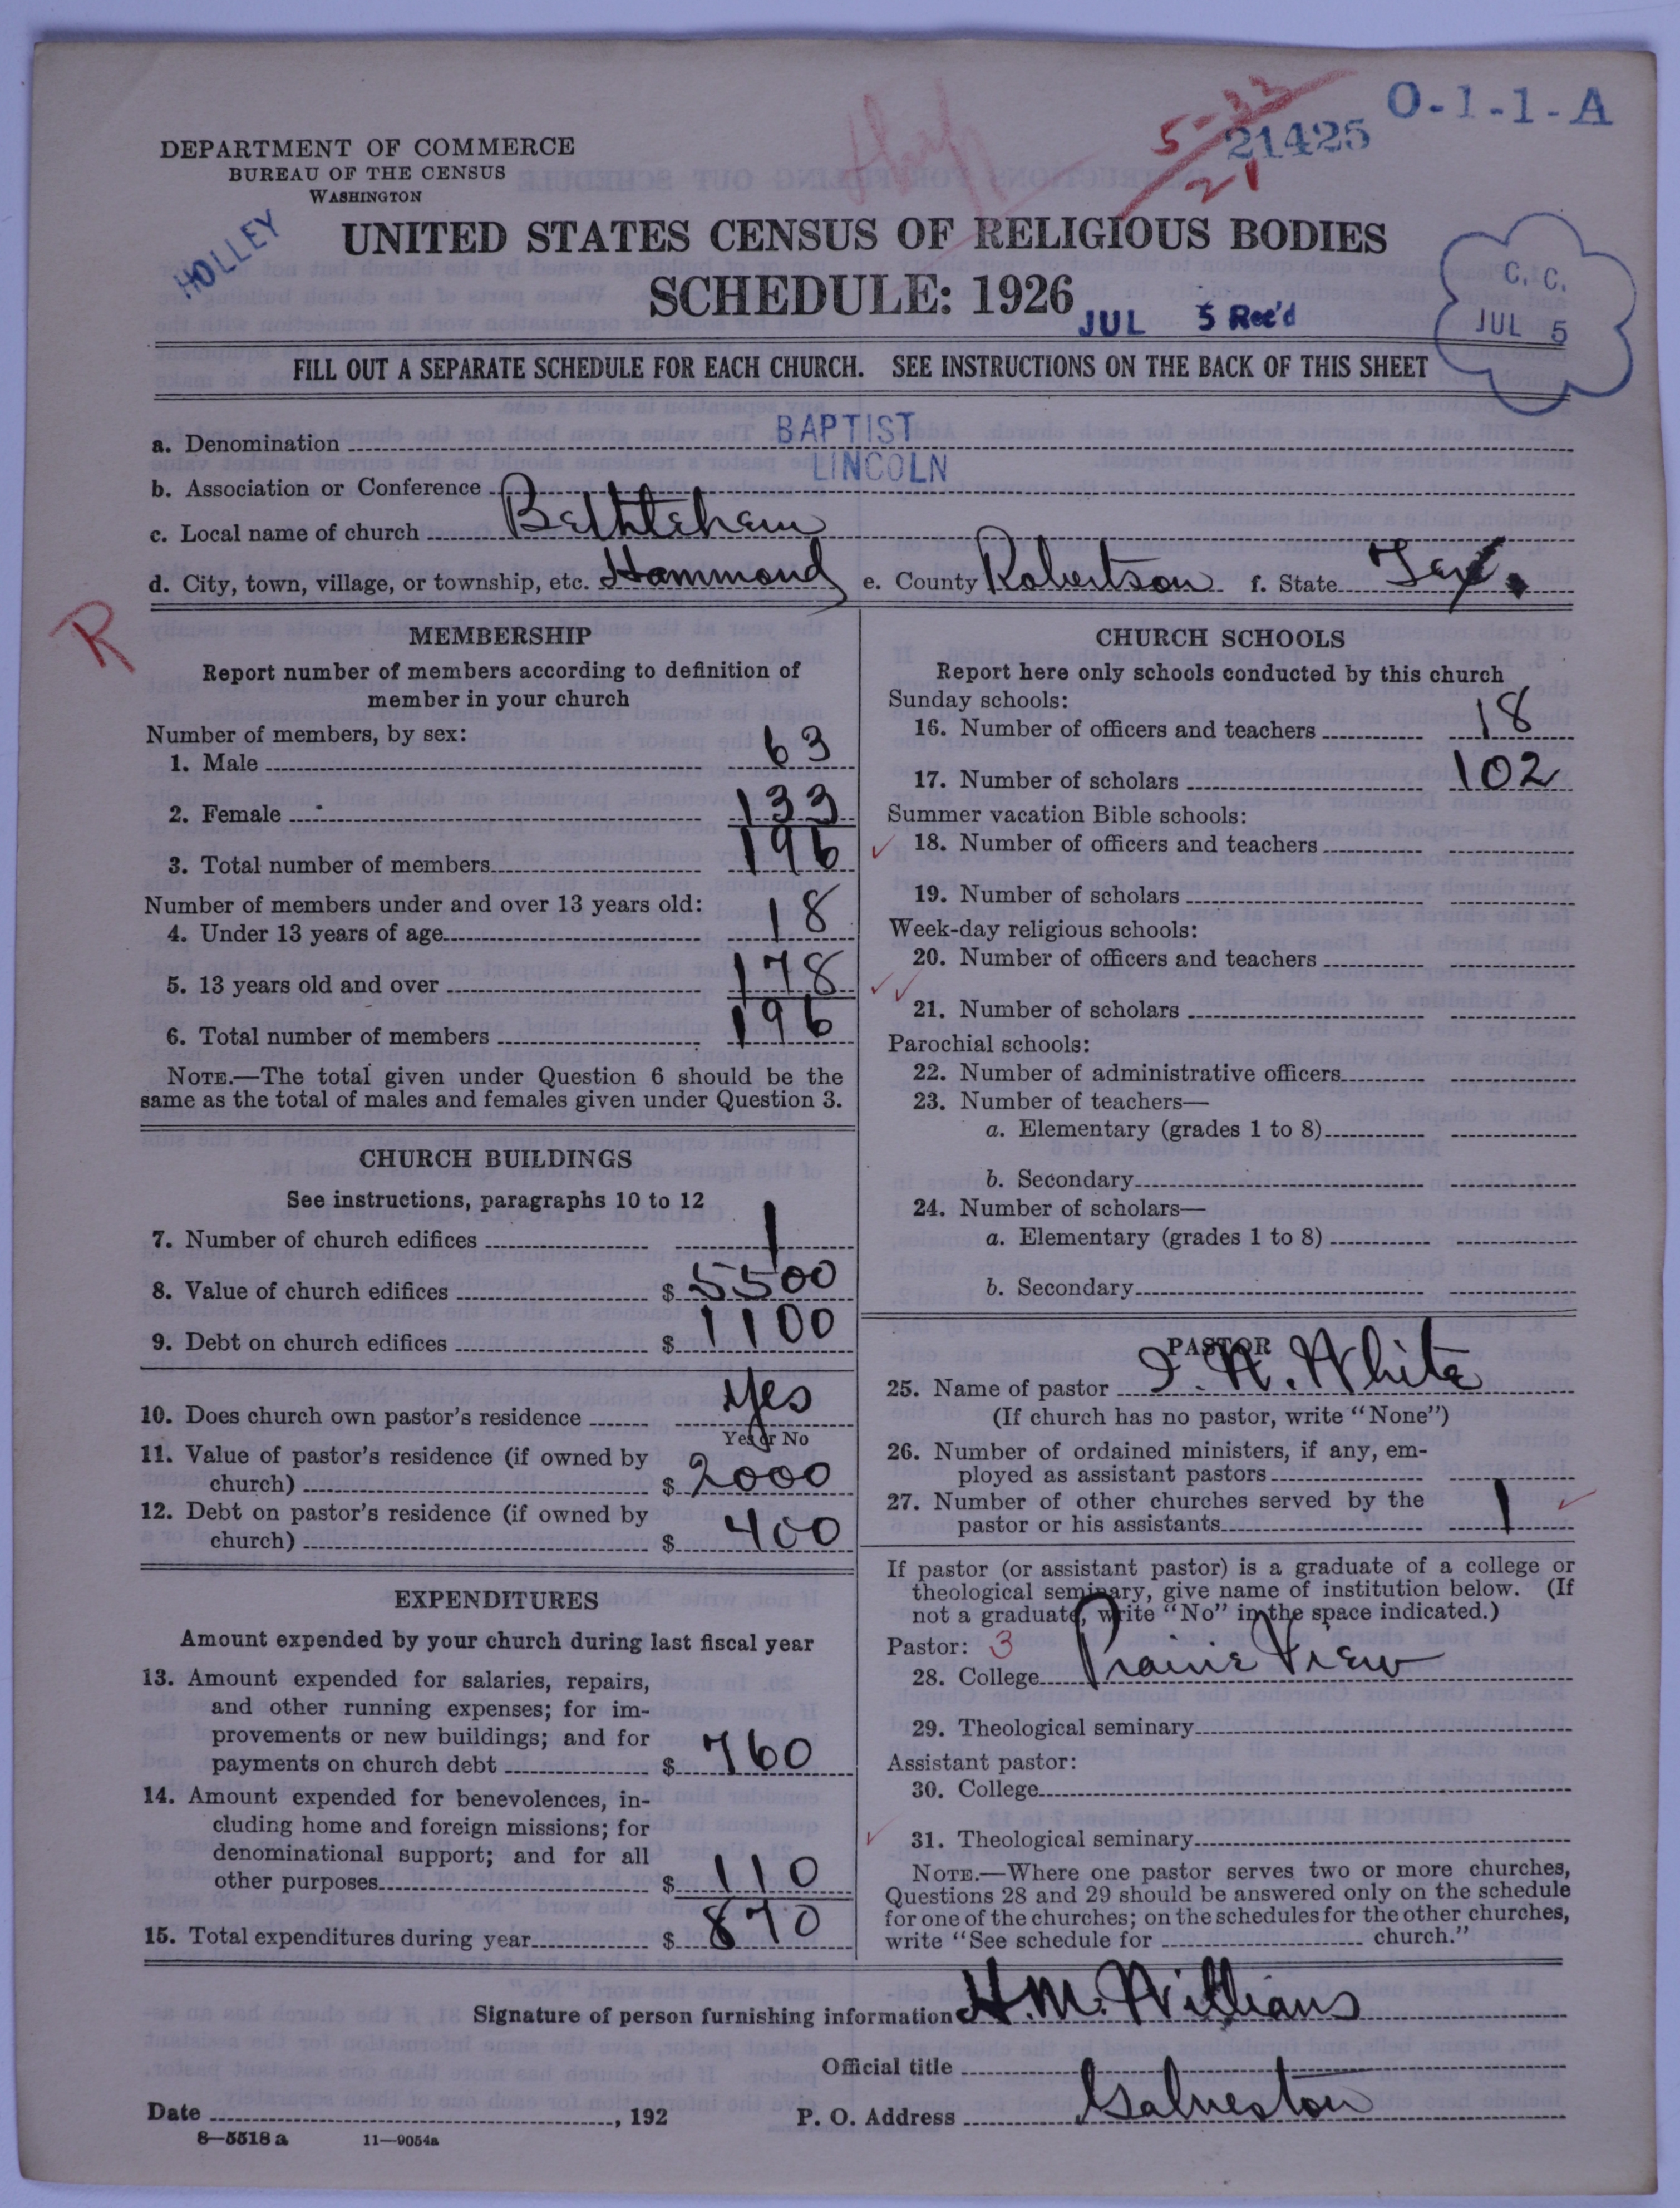 O-1-1-A
5-33
21425
21
DEPARTMENT OF COMMERCE
BUREAU OF THE CENSUS
WASHINGTON
HOLLEY
UNITED STATES CENSUS OF RELIGIOUS BODIES
SCHEDULE: 1926
JUL 5 Rec'd
C.C.
JUL 5
FILL OUT A SEPARATE SCHEDULE FOR EACH CHURCH. SEE INSTRUCTIONS ON THE BACK OF THIS SHEET
a. Denomination BAPTIST
LINCOLN
b. Association or Conference
c. Local name of church Bethleham
d. City, town, village, or township, etc. Hammond e. County Robertson f. State Tex.
R
MEMBERSHIP
Report number of members according to definition of
member in your church
Number of members, by sex:
1. Male 63
2. Female 133
3. Total number of members 196
Number of members under and over 13 years old:
4. Under 13 years of age 18
5. 13 years old and over 178
6. Total number of members 196
NOTE.—The total given under Question 6 should be the
same as the total of males and females given under Question 3.
CHURCH BUILDINGS
See instructions, paragraphs 10 to 12
7. Number of church edifices 1
8. Value of church edifices $ 5500
9. Debt on church edifices $ 1100
10. Does church own pastor's residence Yes
Yes or No
11. Value of pastor's residence (if owned by
church) $ 2000
12. Debt on pastor's residence (if owned by
church) $ 400
EXPENDITURES
Amount expended by your church during last fiscal year
13. Amount expended for salaries, repairs,
and other running expenses; for im-
provements or new buildings; and for
payments on church debt $ 760
14. Amount expended for benevolences, in-
cluding home and foreign missions; for
denominational support; and for all
other purposes $ 110
15. Total expenditures during year $ 870
CHURCH SCHOOLS
Report here only schools conducted by this church
Sunday schools:
16. Number of officers and teachers 18
17. Number of scholars 102
Summer vacation Bible schools:
18. Number of officers and teachers
19. Number of scholars
Week-day religious schools:
20. Number of officers and teachers
21. Number of scholars
Parochial schools:
22. Number of administrative officers
23. Number of teachers—
a. Elementary (grades 1 to 8)
b. Secondary
24. Number of scholars—
a. Elementary (grades 1 to 8)
b. Secondary
PASTOR
25. Name of pastor White
(If church has no pastor, write "None")
26. Number of ordained ministers, if any, em-
ployed as assistant pastors
27. Number of other churches served by the
pastor or his assistants 1
If pastor (or assistant pastor) is a graduate of a college or
theological seminary, give name of institution below. (If
not a graduate, write "No" in the space indicated.)
Pastor: 3
28. College Prairie View
29. Theological seminary
Assistant pastor:
30. College
31. Theological seminary
NOTE.—Where one pastor serves two or more churches,
Questions 28 and 29 should be answered only on the schedule
for one of the churches; on the schedules for the other churches,
write "See schedule for church."
Signature of person furnishing information H.M. Williams
Official title
Date , 192 P. O. Address Galveston
8—5518 a 11—9054a